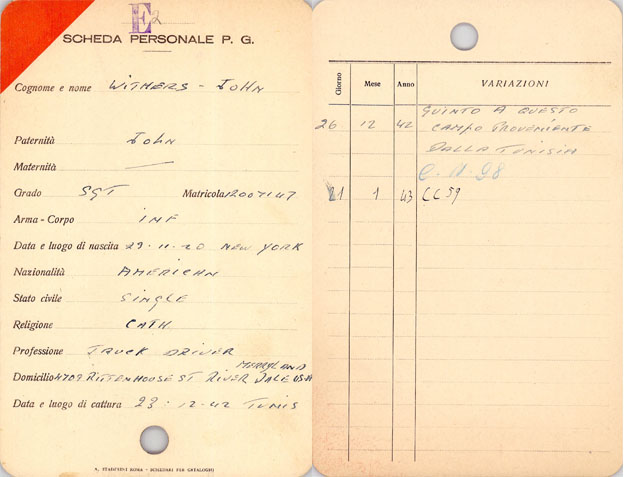 E 2
SCHEDA PERSONALE P. G.
Cognome e nome WITHERS - JOHN
Paternità JOHN
Maternità —
Grado SGT Matricola 12007147
Arma - Corpo INF
Data e luogo di nascita 29-11-20 NEW YORK
Nazionalità AMERICAN
Stato civile SINGLE
Religione CATH
Professione TRUCK DRIVER
MARRYLAND
Domicilio 4709 RITTENHOUSE ST RIVER DALE USA
Data e luogo di cattura 23-12-42 TUNIS
Giorno Mese Anno VARIAZIONI
26 12 42 GUINTO A QUESTO
CAMPO PROVENIENTE
DALLA TUNISIA
C. N. 98
21 1 43 CC 59